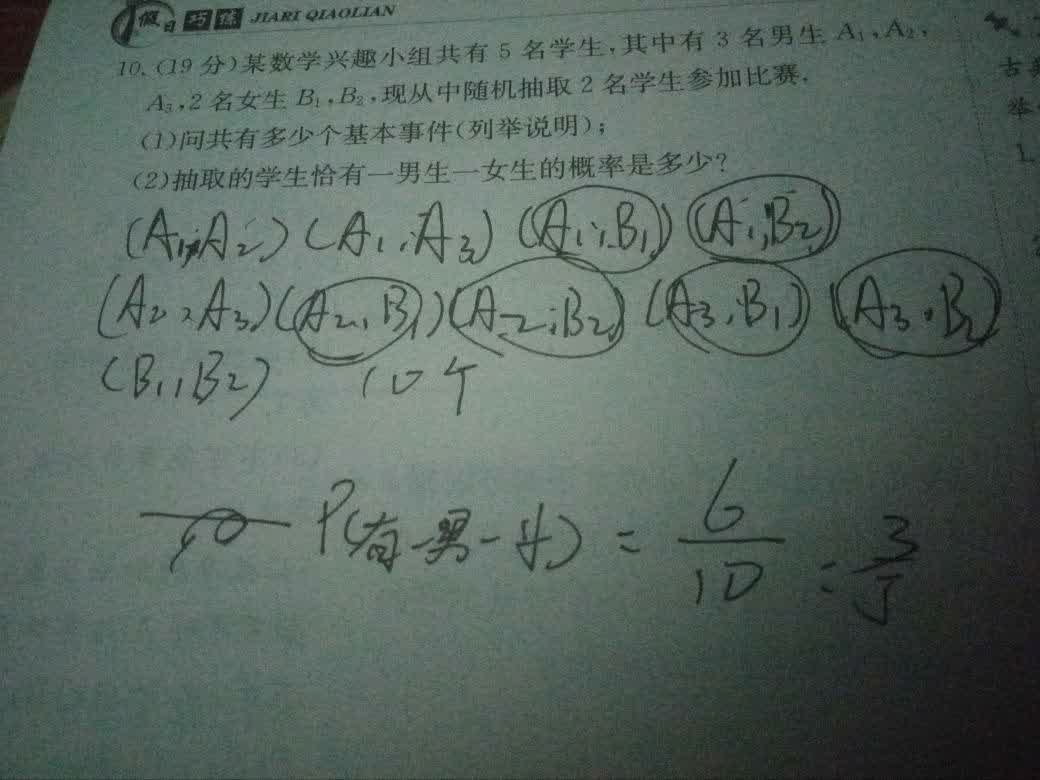 假日巧练 JIARI QIAOLIAN
10.(19分)某数学兴趣小组共有5名学生,其中有3名男生A₁,A₂,
A₃,2名女生B₁,B₂,现从中随机抽取2名学生参加比赛.
(1)问共有多少个基本事件(列举说明);
(2)抽取的学生恰有一男生一女生的概率是多少?
(A₁,A₂)(A₁,A₃)(A₁,B₁)(A₁,B₂)
(A₂,A₃)(A₂,B₁)(A₂,B₂)(A₃,B₁)(A₃,B₂)
(B₁,B₂) 10个
P(有一男一女)=6/10=3/5
古典
举
1.